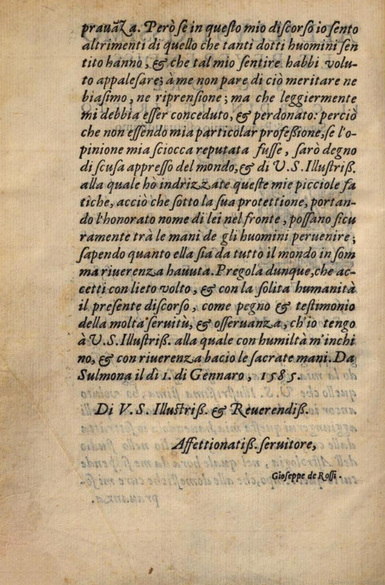 prauãza. Però se in questo mio discorso io sento
altrimenti di quello che tanti dotti huomini sen
tito hanno, & che tal mio sentire habbi volu-
to appalesare; à me non pare di ciò meritare ne
biasimo, ne riprensione; ma che leggiermente
mi debbia esser conceduto, & perdonato: perciò
che non essendo mia particolar professione, se l'o-
pinione mia sciocca reputata fusse, sarò degno
di scusa appresso del mondo, & di V. S. Illustriß.
alla quale ho indrizzate queste mie picciole fa
tiche, acciò che sotto la sua protettione, portan-
do l'honorato nome di lei nel fronte, possano sicu
ramente trà le mani de gli huomini peruenire;
sapendo quanto ella sia da tutto il mondo in som
ma riuerenza hauuta. Pregola dunque, che ac-
cetti con lieto volto, & con la solita humanità
il presente discorso, come pegno & testimonio
della molta seruitù, & osseruanza, ch'io tengo
à V. S. Illustriß. alla quale con humiltà m'inchi
no, & con riuerenza bacio le sacrate mani. Da
Sulmona il dì 1. di Gennaro, 1585.
Di V. S. Illustriß. & Reuerendiß.
Affettionatiß. seruitore,
Gioseppe de Rossi.